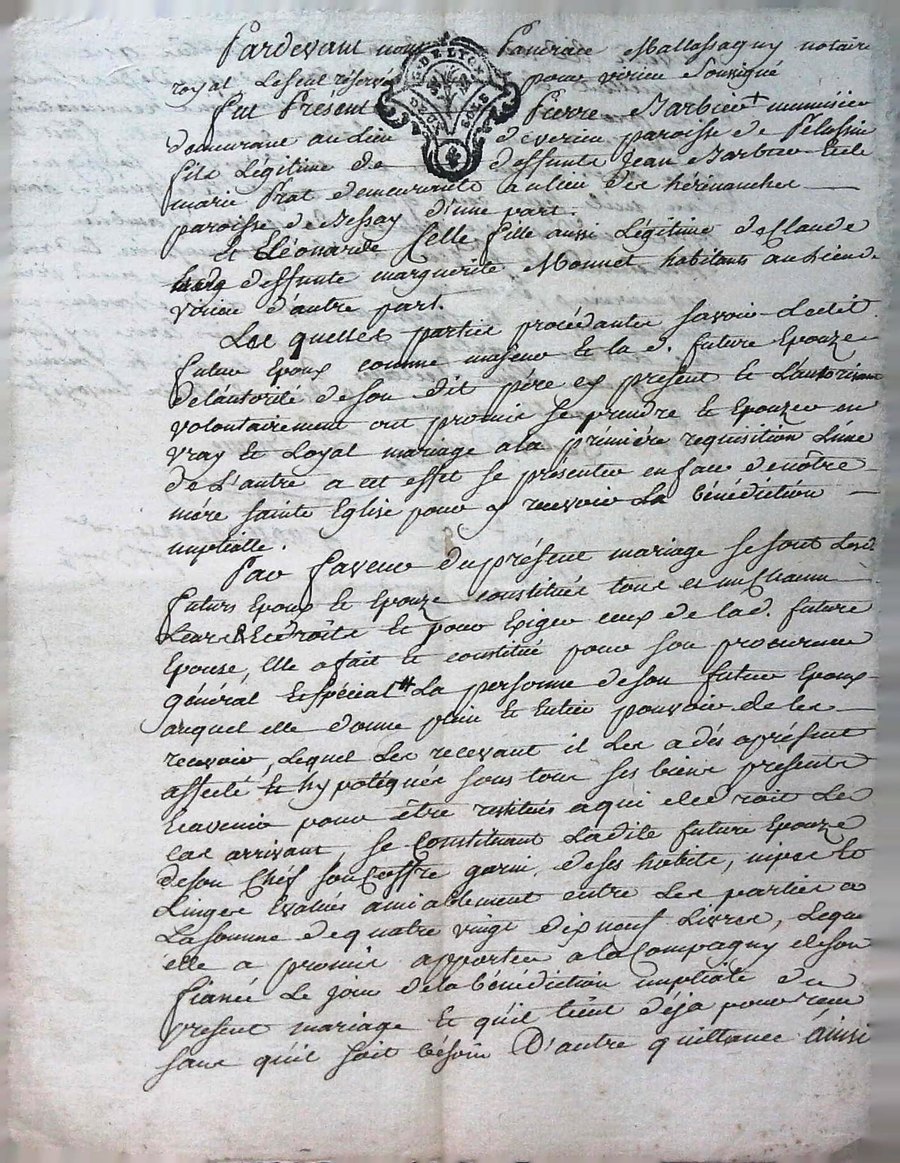 Pardevant nous Pancrace Mallassagny notaire
royal Leseul réservé pour virieu Sousigné
G. DE LYON
DEUX SOLS
Fut Présent Pierre Barbier + menuisier
demeurant au Lieu de verieu paroisse de Pélussin
fils Légitime de deffunts Jean Barbier et de
marie Prat demeurants au lieu des hérénanches
paroisse de Bessay d'une part.
Et Léonarde Celle fille aussi Légitime de Claude
deffunte marguerite Monnet habitans au Lieu de
virieu d'autre part.
Les quelles parties procédantes savoir Ledit
futur Epoux comme majeur et la d. future Epouze
de L'autorité de son dit père ey présent et L'autorisant
volontairement ont promis se prendre et Epouzer en
vray et Loyal mariage a la première requisition L'une
de L'autre a cet effet se présenter en face de nôtre
mère sainte Eglise pour y recevoir La bénédiction
nuptialle.
Par faveur du présent mariage se sont Lesd.
futurs Epoux et Epouze constitués tous et un Chacun
Leurs droits et pour Exiger ceux de la d. future
Epouse, elle a fait et constitué pour son procureur
général et spécial La personne de son futur Epoux
auquel elle donne plain et Entier pouvoir de les
recevoir, Lequel Les recevant il Les a dés aprésent
affecté et hypotéqués sous tous ses biens présents
et avenir pour être restitués a qui de droit Le
cas arrivant, se Constituant Ladite future Epouze
de son Chef son Coffre garni, de ses habits, nipes et
Linges Evalués amiablement entre Les parties a
La somme de quatre vingt dix neuf Livres, Leque
elle a promis apporter a la Compagny de son
fiancé Le jour de la bénédiction nuptiale du
present mariage et qu'il tient déja pour recu
sans qu'il soit bésoin D'autre quittance ainsi